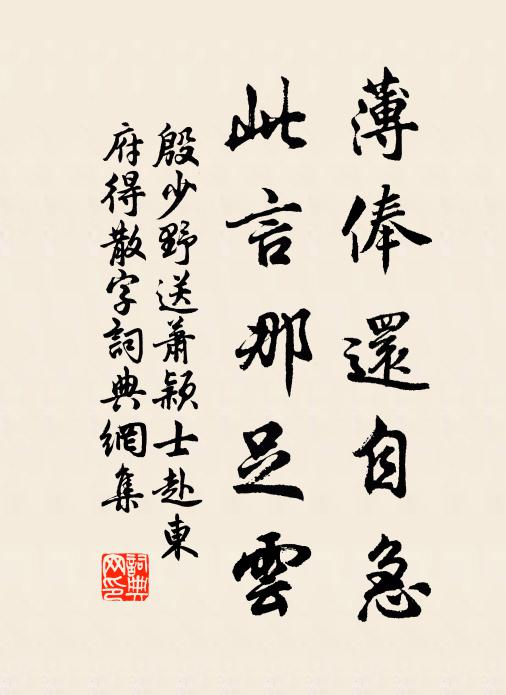 薄俸還自急
此言那足雲
殷少野送蕭颖士赴東
府得散字詞典網集
詞典
网印